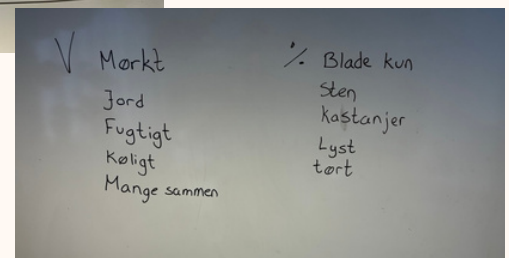 V Mørkt
Jord
Fugtigt
Køligt
Mange sammen
% Blade kun
Sten
Kastanjer
Lyst
tørt